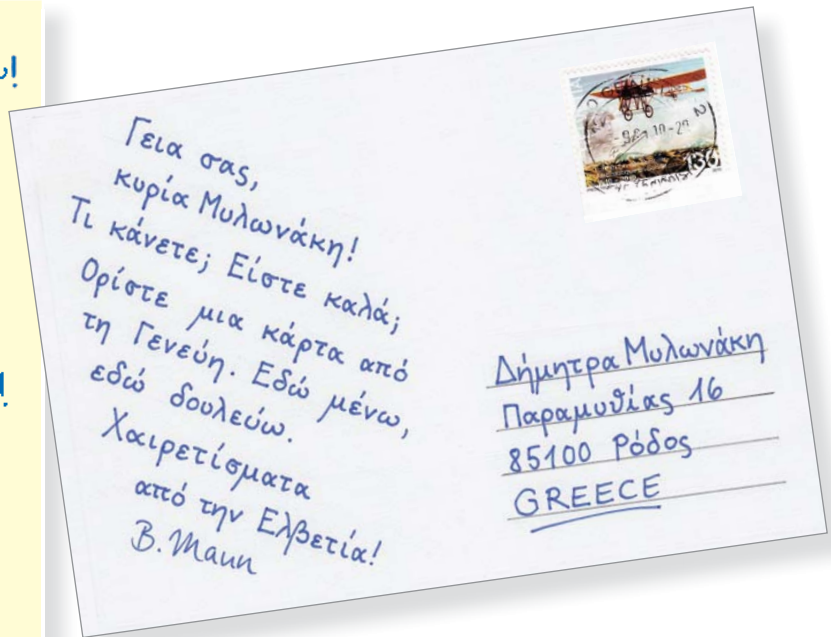 Γεια σας,
κυρία Μυλωνάκη!
Τι κάνετε; Είστε καλά;
Ορίστε μια κάρτα από
τη Γενεύη. Εδώ μένω,
εδώ δουλεύω.
Χαιρετίσματα
από την Ελβετία!
136
Δήμητρα Μυλωνάκη
Παραμυθίας 16
85100 Ρόδος
GREECE